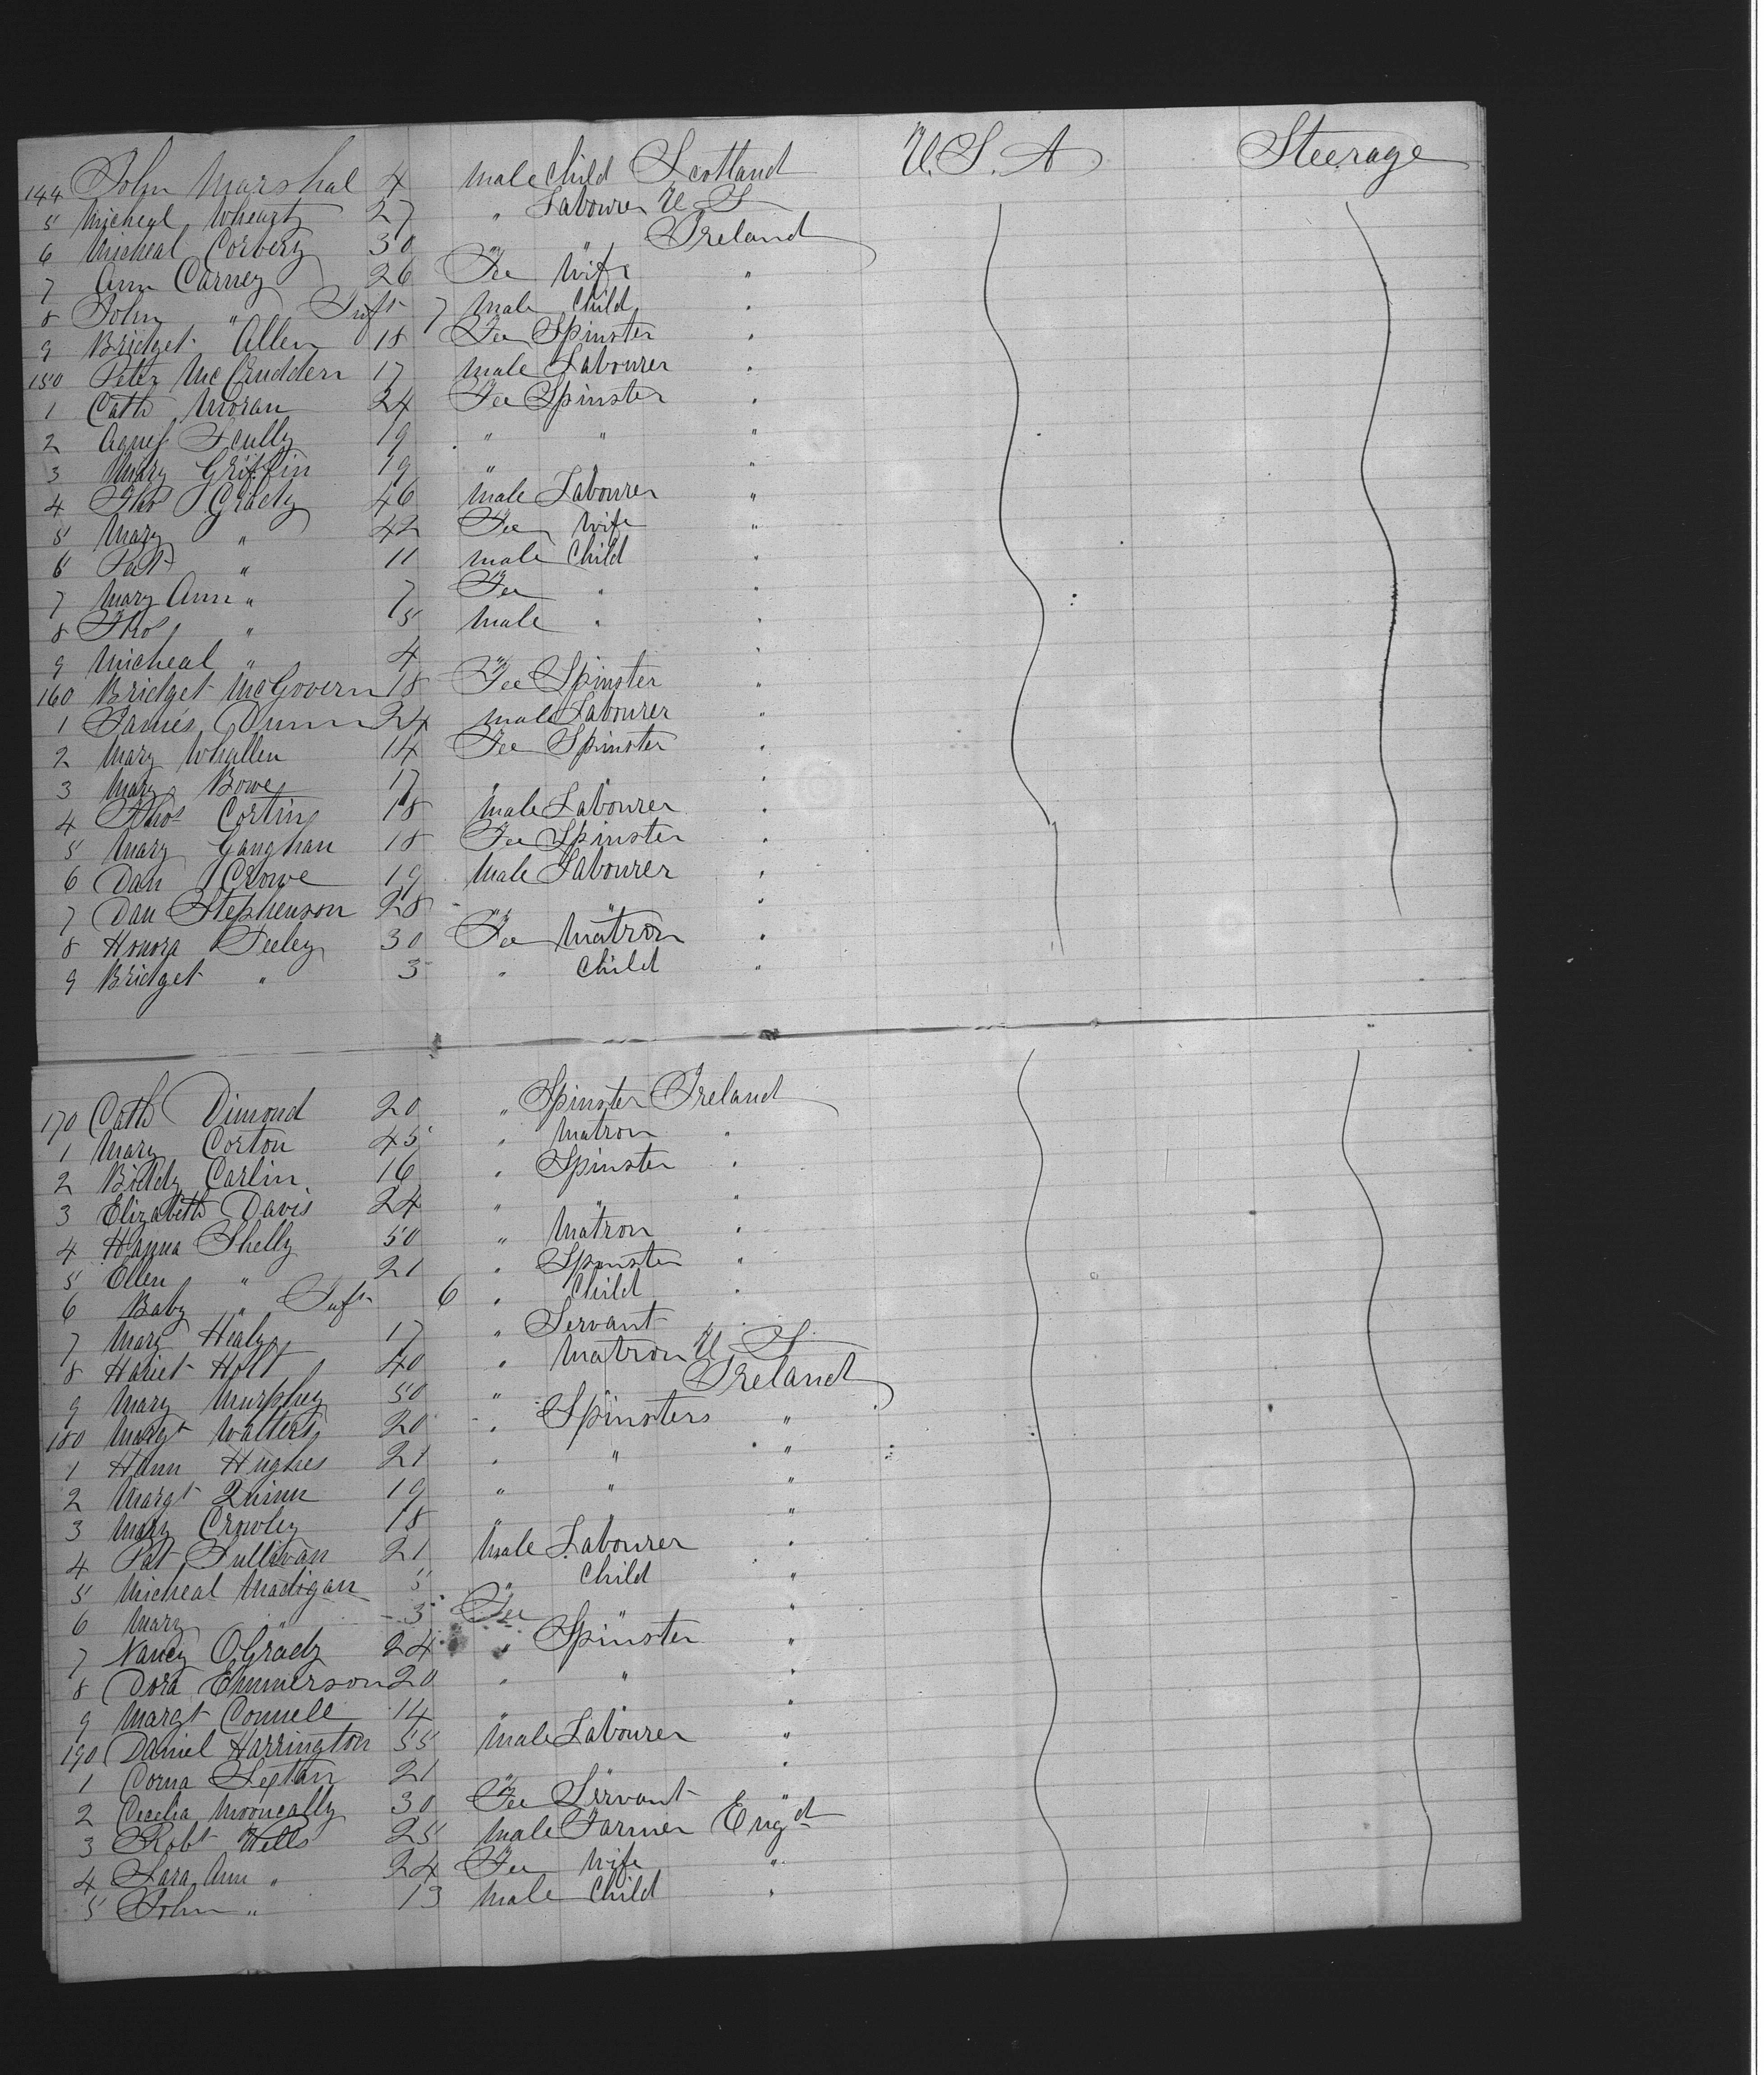 144 John Marshal 4 male Child Scotland U.S.A Steerage
5 Micheal 27 " Labourer U S
6 Micheal Corbery 30 " " Ireland
7 Ann Carney 26 Fe Wife "
8 John " Inft 7 male Child "
9 Bridget Allen 18 Fe Spinster "
150 Peter McCrudden 17 male Labourer "
1 Cath Moran 24 Fe Spinster "
2 Agnes Scully 19 " " "
3 Mary Griffin 19 " "
4 Thos Grady 46 male Labourer "
5 Mary " 42 Fe Wife "
6 Pat " 11 male Child "
7 Mary Ann " 7 Fe " "
8 Thos " 5 male " "
9 Micheal " 4 " "
160 Bridget McGovern 18 Fe Spinster "
1 James Dunn 24 male Labourer "
2 Mary Whallen 14 Fe Spinster "
3 Mary Bowe 17 " "
4 Thos Cortin 18 male Labourer "
5 Mary Gaughan 18 Fe Spinster "
6 Dan Crowe 19 male Labourer "
7 Dan Stephenson 28 " " "
8 Honora Feeley 30 Fe Matron "
9 Bridget " 3 " Child "
170 Cath Dimond 20 " Spinster Ireland
1 Mary Corton 45 " Matron "
2 Biddy Carlin 16 " Spinster "
3 Elizabeth Davis 24 " " "
4 Hanna Shelly 50 " Matron "
5 Ellen " 21 " Spinster "
6 Baby " Inft 6 " Child "
7 Mary Healy 17 " Servant "
8 Hariet Holt 40 " Matron U S
9 Mary Murphey 50 " " Ireland
180 Margt Walters 20 " Spinsters "
1 Hann Hughes 21 " " "
2 Margt Quinn 19 " " "
3 Mary Crowley 18 " "
4 Pat Sullivan 21 male Labourer "
5 Micheal Madigan 5 " Child "
6 Mary " 3 Fe " "
7 Nancy O'Grady 24 " Spinster "
8 Dora Emmerson 20 " " "
9 Margt Connell 14 " "
190 Daniel Harrington 55 male Labourer "
1 Corna Sextan 21 " " "
2 Cecelia 30 Fe Servant "
3 Robt Wells 25 male Farmer Engd
4 Sara Ann " 24 Fe Wife "
5 John " 13 male Child "